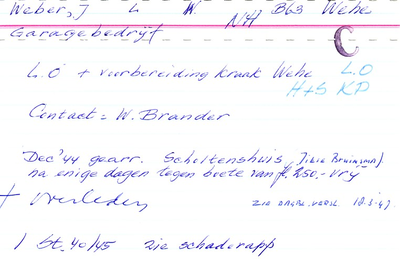 Weber, J L W. NH B63 Wehe
Garagebedrijf C
L.O + voorbereiding kraak Wehe L.O
H+S KP
Contact = W. Brander
Dec '44 gearr. Scholtenshuis (Tibie Bruinsma)
na enige dagen tegen boete van fl. 250.- vrij
+ overleden zie dagbl. versl. 18-3-47
1 St. 40/45 zie schaderapp